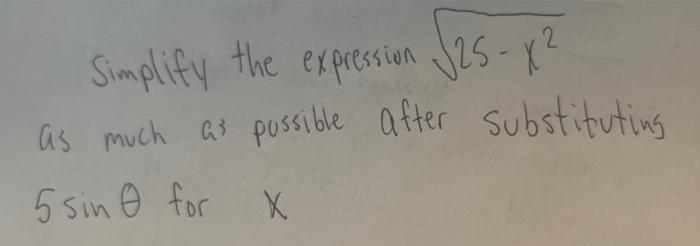 Simplify the expression √25 - x²
as much as possible after substituting
5 sin θ for x